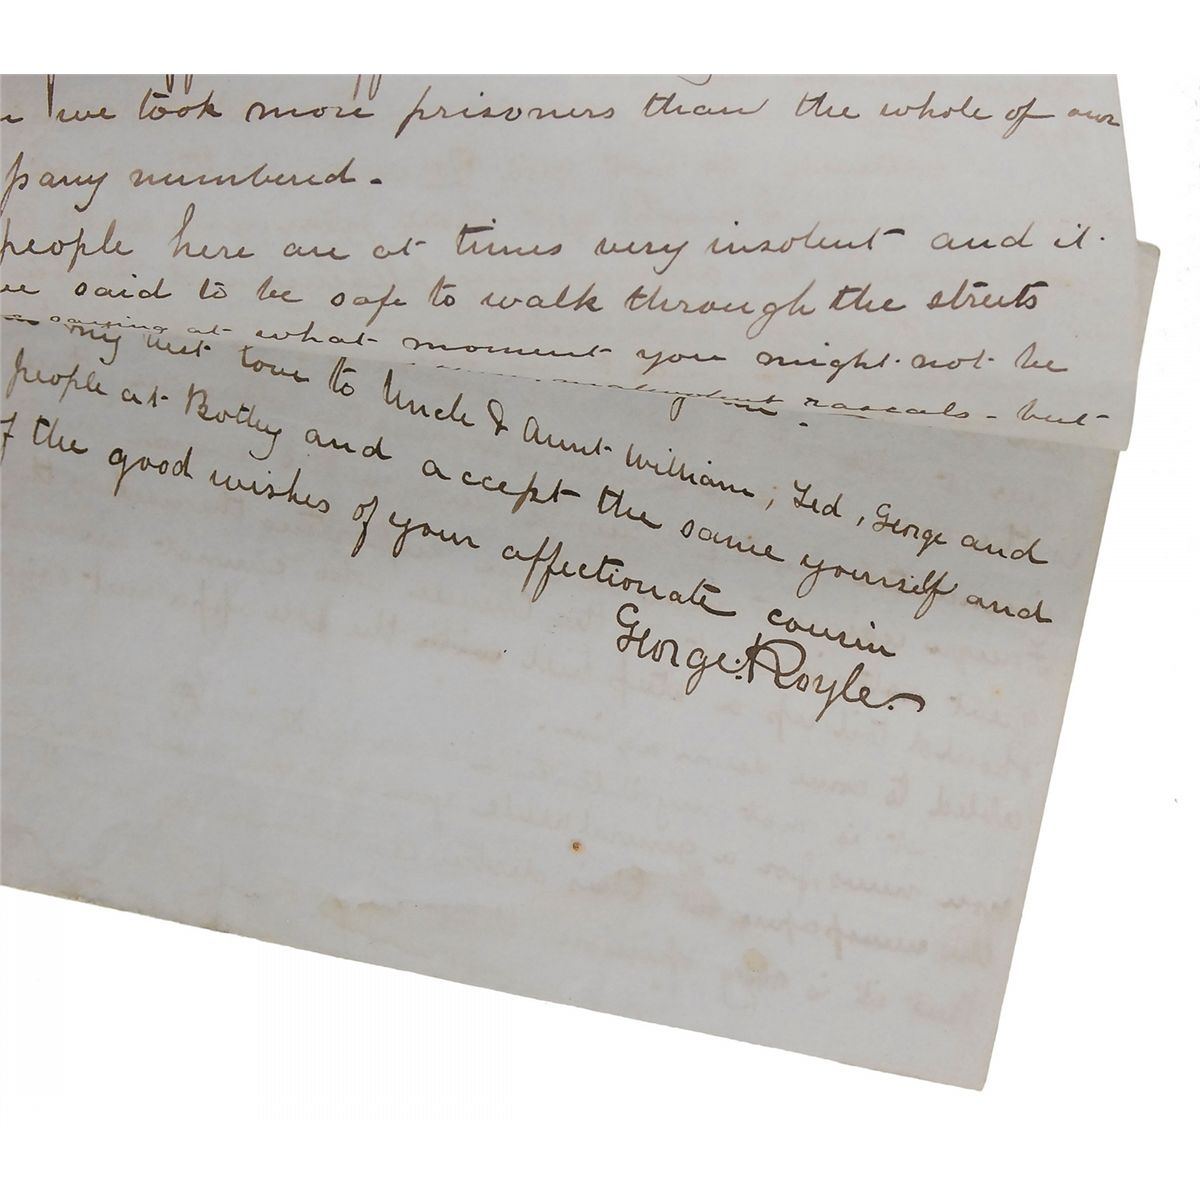 we took more prisoners than the whole of our
pany numbered.
people here are at times very insolent and it
said to be safe to walk through the streets
at what moment you might not be
rascals - but
my best love to Uncle & Aunt William, Ted, George and
people at Botley and accept the same yourself and
of the good wishes of your affectionate cousin
George Royle.